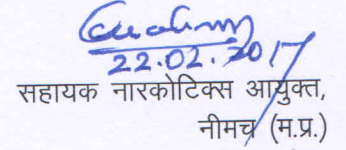 22.02.2017
सहायक नारकोटिक्स आयुक्त,
नीमच (म.प्र.)